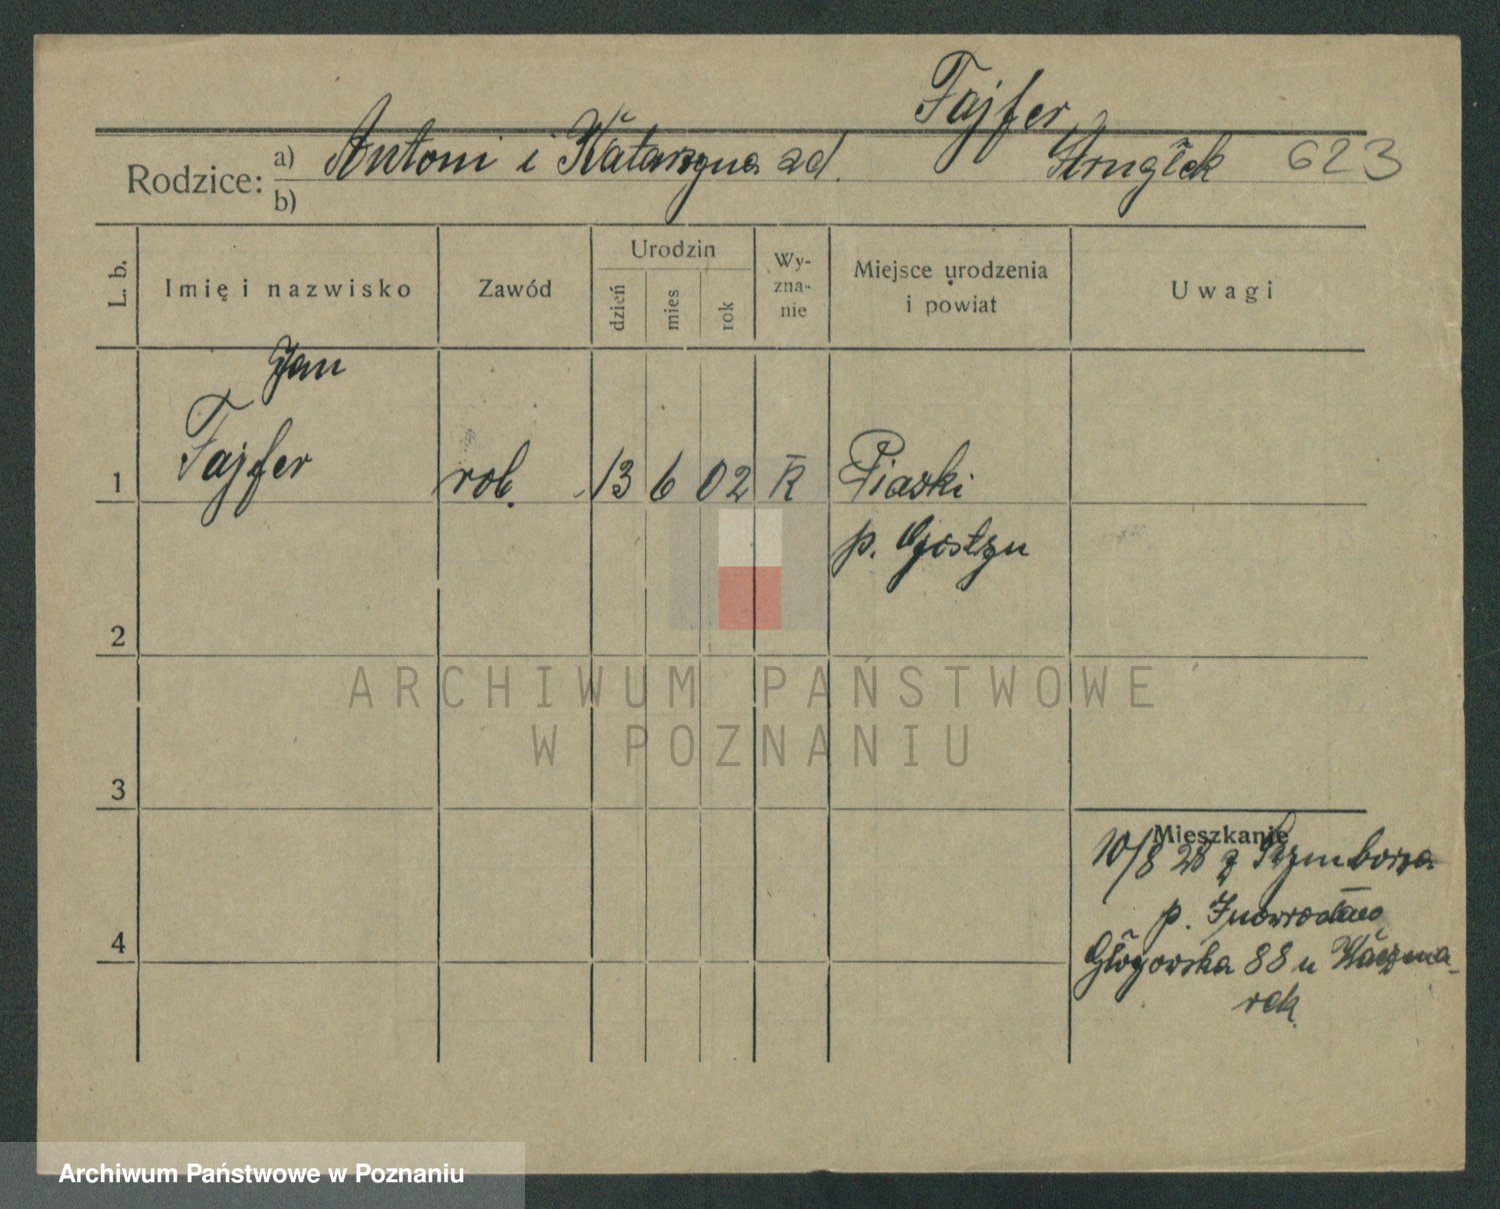 Fajfer
Rodzice: a) Antoni i Katarzyna zd. 623
b)
L. b. Imię i nazwisko Zawód Urodzin dzień mies rok Wy-zna-nie Miejsce urodzenia i powiat Uwagi
Jan
1 Fajfer rob. 13 6 02 K Piaski
p. Gostyn
2
3
Mieszkanie
10/8 28 z Szymborza
p. Inowrocław
4
Głogowska 88 u Kaczma-
rek.
ARCHIWUM PAŃSTWOWE
W POZNANIU
Archiwum Państwowe w Poznaniu